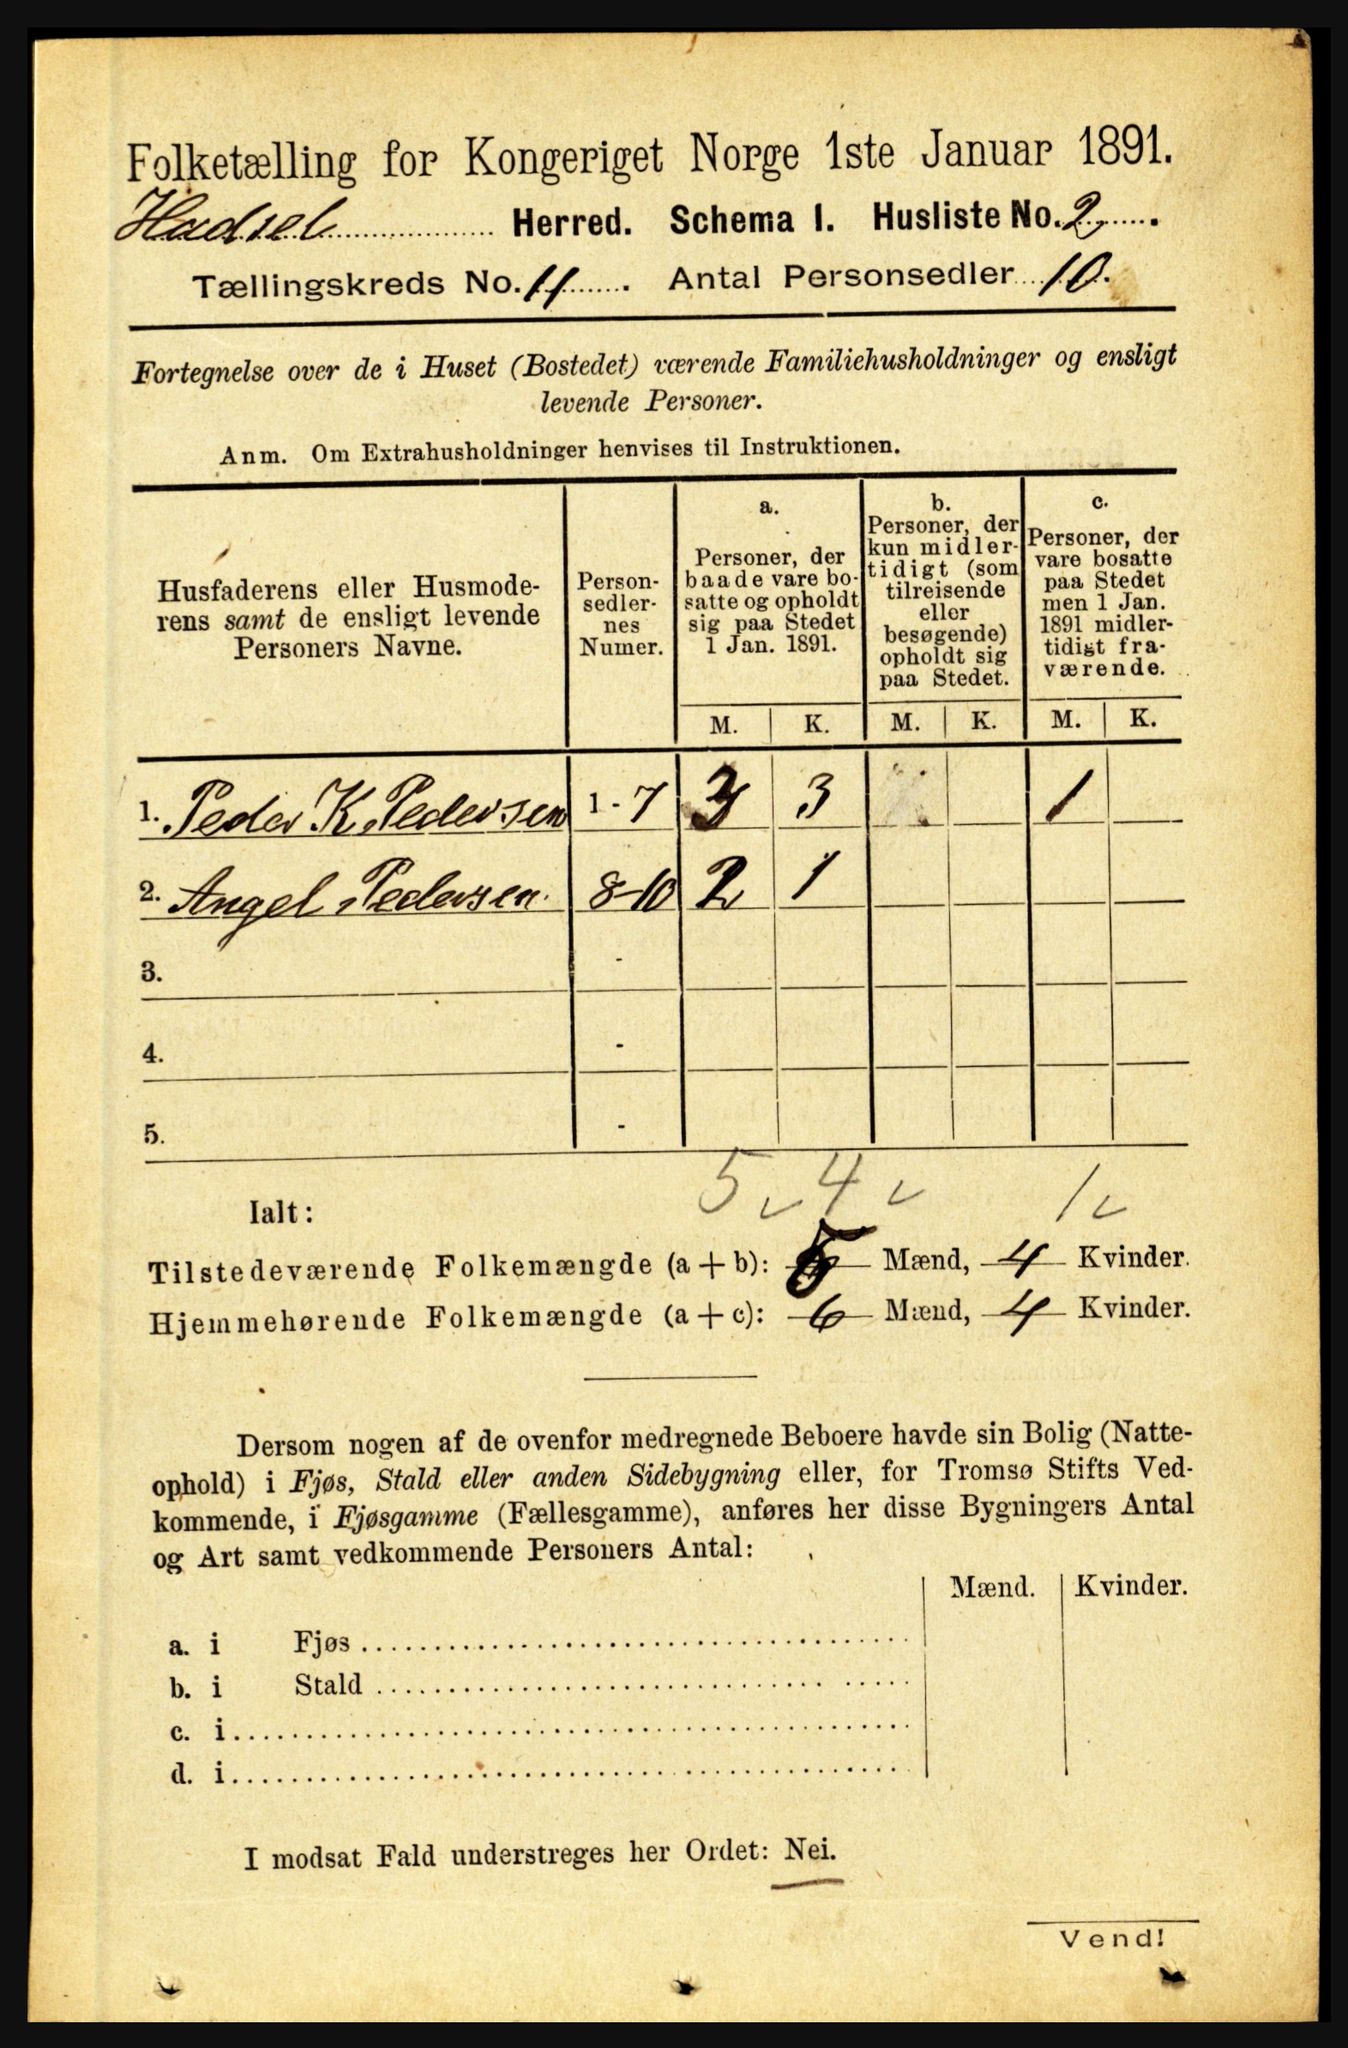 Folketælling for Kongeriget Norge 1ste Januar 1891.
Hadsel Herred. Schema I. Husliste No. 2.
Tællingskreds No. 11. Antal Personsedler 10.
Fortegnelse over de i Huset (Bostedet) værende Familiehusholdninger og ensligt
levende Personer.
Anm. Om Extrahusholdninger henvises til Instruktionen.
Husfaderens eller Husmode-
rens samt de ensligt levende
Personers Navne.
Person-
sedler-
nes
Numer.
a.
Personer, der
baade vare bo-
satte og opholdt
sig paa Stedet
1 Jan. 1891.
b.
Personer, der
kun midler-
tidigt (som
tilreisende
eller
besøgende)
opholdt sig
paa Stedet.
c.
Personer, der
vare bosatte
paa Stedet
men 1 Jan.
1891 midler-
tidigt fra-
værende.
M. K. M. K. M. K.
1. Peder K. Pedersen 1-7 3 3 1
2. Angel Pedersen. 8-10 2 1
3. -
4. -
5. -
Ialt: 5 4 1
Tilstedeværende Folkemængde (a + b): 5 Mænd, 4 Kvinder.
Hjemmehørende Folkemængde (a + c): 6 Mænd, 4 Kvinder.
Dersom nogen af de ovenfor medregnede Beboere havde sin Bolig (Natte-
ophold) i Fjøs, Stald eller anden Sidebygning eller, for Tromsø Stifts Ved-
kommende, i Fjøsgamme (Fællesgamme), anføres her disse Bygningers Antal
og Art samt vedkommende Personers Antal:
Mænd. Kvinder.
a. i Fjøs
b. i Stald
c. i
d. i
I modsat Fald understreges her Ordet: Nei.
Vend!